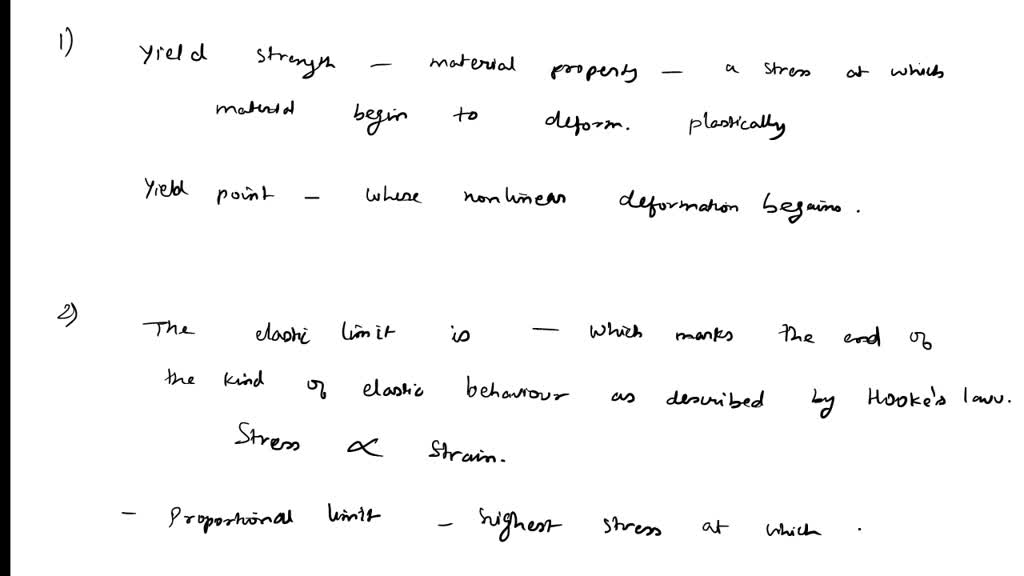 1) Yield strength – material property – a stress at which
material begin to deform. plastically
Yield point – where nonlinear deformation begains.
2) The elastic limit is – which marks the end of
the kind of elastic behaviour as described by Hooke's law.
Stress ∝ Strain.
– Proportional limit – highest stress at which .